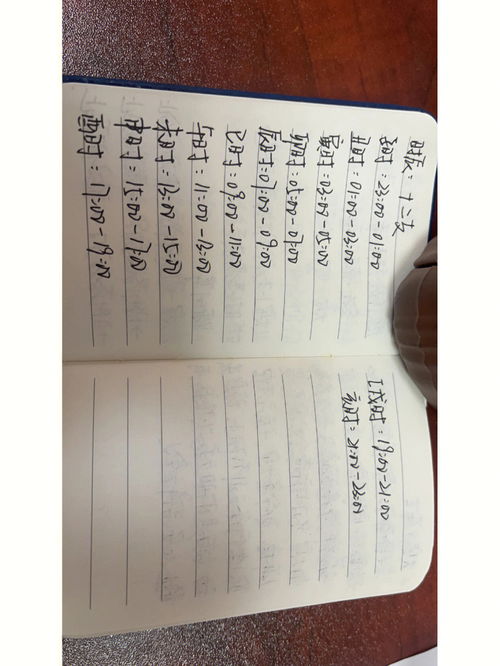 时辰：十二支
子时：23:00-01:00
丑时：01:00-03:00
寅时：03:00-05:00
卯时：05:00-07:00
辰时：07:00-09:00
巳时：09:00-11:00
午时：11:00-13:00
未时：13:00-15:00
申时：15:00-17:00
酉时：17:00-19:00
戌时：19:00-21:00
亥时：21:00-23:00